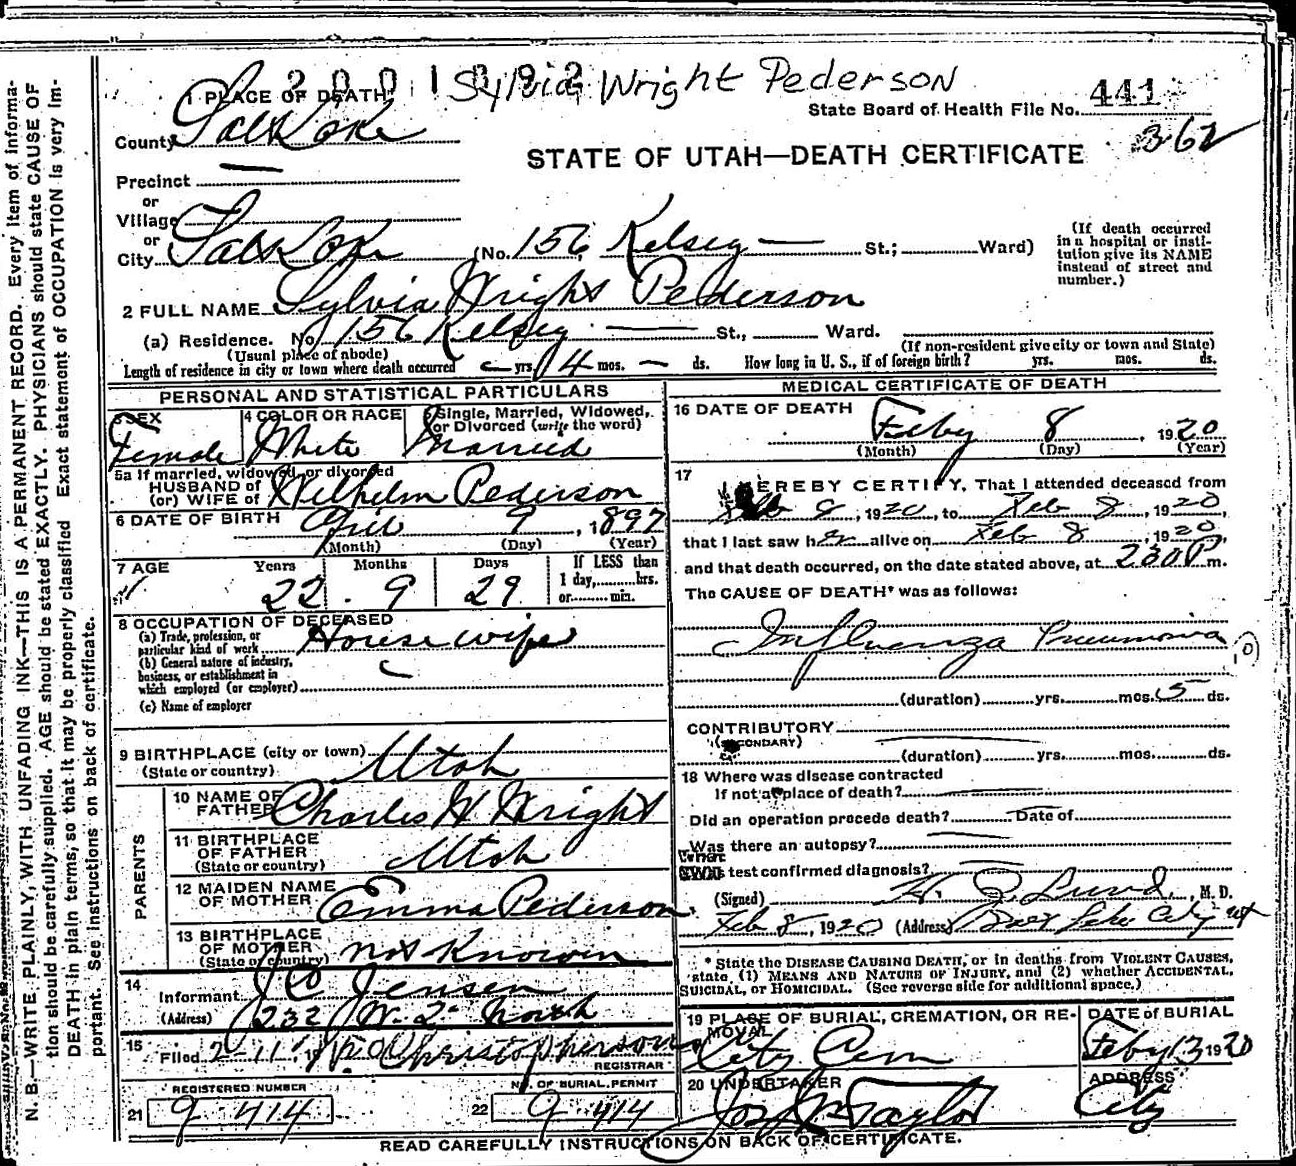 2001392 Sylvia Wright Pederson
1 PLACE OF DEATH
State Board of Health File No. 441
County Salt Lake
362
STATE OF UTAH—DEATH CERTIFICATE
Precinct —
or
Village
or
City Salt Lake (No. 156 Kelsey — St.; Ward)
(If death occurred in a hospital or institution give its NAME instead of street and number.)
2 FULL NAME Sylvia Wright Pederson
(a) Residence. No. 156 Kelsey — St., Ward.
(Usual place of abode) (If non-resident give city or town and State)
Length of residence in city or town where death occurred — yrs. 4 mos. — ds. How long in U. S., if of foreign birth? yrs. mos. ds.
PERSONAL AND STATISTICAL PARTICULARS
3 SEX Female
4 COLOR OR RACE White
5 Single, Married, Widowed, or Divorced (write the word) Married
5a If married, widowed, or divorced
HUSBAND of
(or) WIFE of Wilhelm Pederson
6 DATE OF BIRTH April 9, 1897
(Month) (Day) (Year)
7 AGE Years Months Days If LESS than
22 9 29 1 day, hrs.
or min.
8 OCCUPATION OF DECEASED
(a) Trade, profession, or particular kind of work House wife
(b) General nature of industry, business, or establishment in which employed (or employer)
(c) Name of employer
9 BIRTHPLACE (city or town)
(State or country) Utah
PARENTS
10 NAME OF FATHER Charles H Wright
11 BIRTHPLACE OF FATHER (State or country) Utah
12 MAIDEN NAME OF MOTHER Emma Pederson
13 BIRTHPLACE OF MOTHER (State or country) not Known
14 Informant J C Jensen
(Address) 232 W. 2 North
15 Filed 2-11 19 Christopherson
REGISTRAR
REGISTERED NUMBER NO. OF BURIAL PERMIT
21 9 414 22 9 414
MEDICAL CERTIFICATE OF DEATH
16 DATE OF DEATH Feby 8, 1920
(Month) (Day) (Year)
17 I HEREBY CERTIFY, That I attended deceased from
Feb 8, 1920, to Feb 8, 1920,
that I last saw her alive on Feb 8, 1920
and that death occurred, on the date stated above, at 230 P m.
The CAUSE OF DEATH* was as follows:
Influenza Pneumonia
(duration) yrs. mos. 5 ds.
CONTRIBUTORY
(SECONDARY)
(duration) yrs. mos. ds.
18 Where was disease contracted
If not at place of death?
Did an operation precede death? Date of
Was there an autopsy?
What test confirmed diagnosis?
(Signed) H. J. Lund, M. D.
Feb 8, 1920 (Address) Salt Lake City Ut
* State the DISEASE CAUSING DEATH, or in deaths from VIOLENT CAUSES,
state (1) MEANS AND NATURE OF INJURY, and (2) whether ACCIDENTAL,
SUICIDAL, or HOMICIDAL. (See reverse side for additional space.)
19 PLACE OF BURIAL, CREMATION, OR REMOVAL City Cem
DATE of BURIAL Feby 13 1920
20 UNDERTAKER Jos Wm Taylor
ADDRESS City
READ CAREFULLY INSTRUCTIONS ON BACK OF CERTIFICATE.
N. B.—WRITE PLAINLY, WITH UNFADING INK—THIS IS A PERMANENT RECORD. Every item of information should be carefully supplied. AGE should be stated EXACTLY. PHYSICIANS should state CAUSE OF DEATH in plain terms, so that it may be properly classified. Exact statement of OCCUPATION is very important. See instructions on back of certificate.